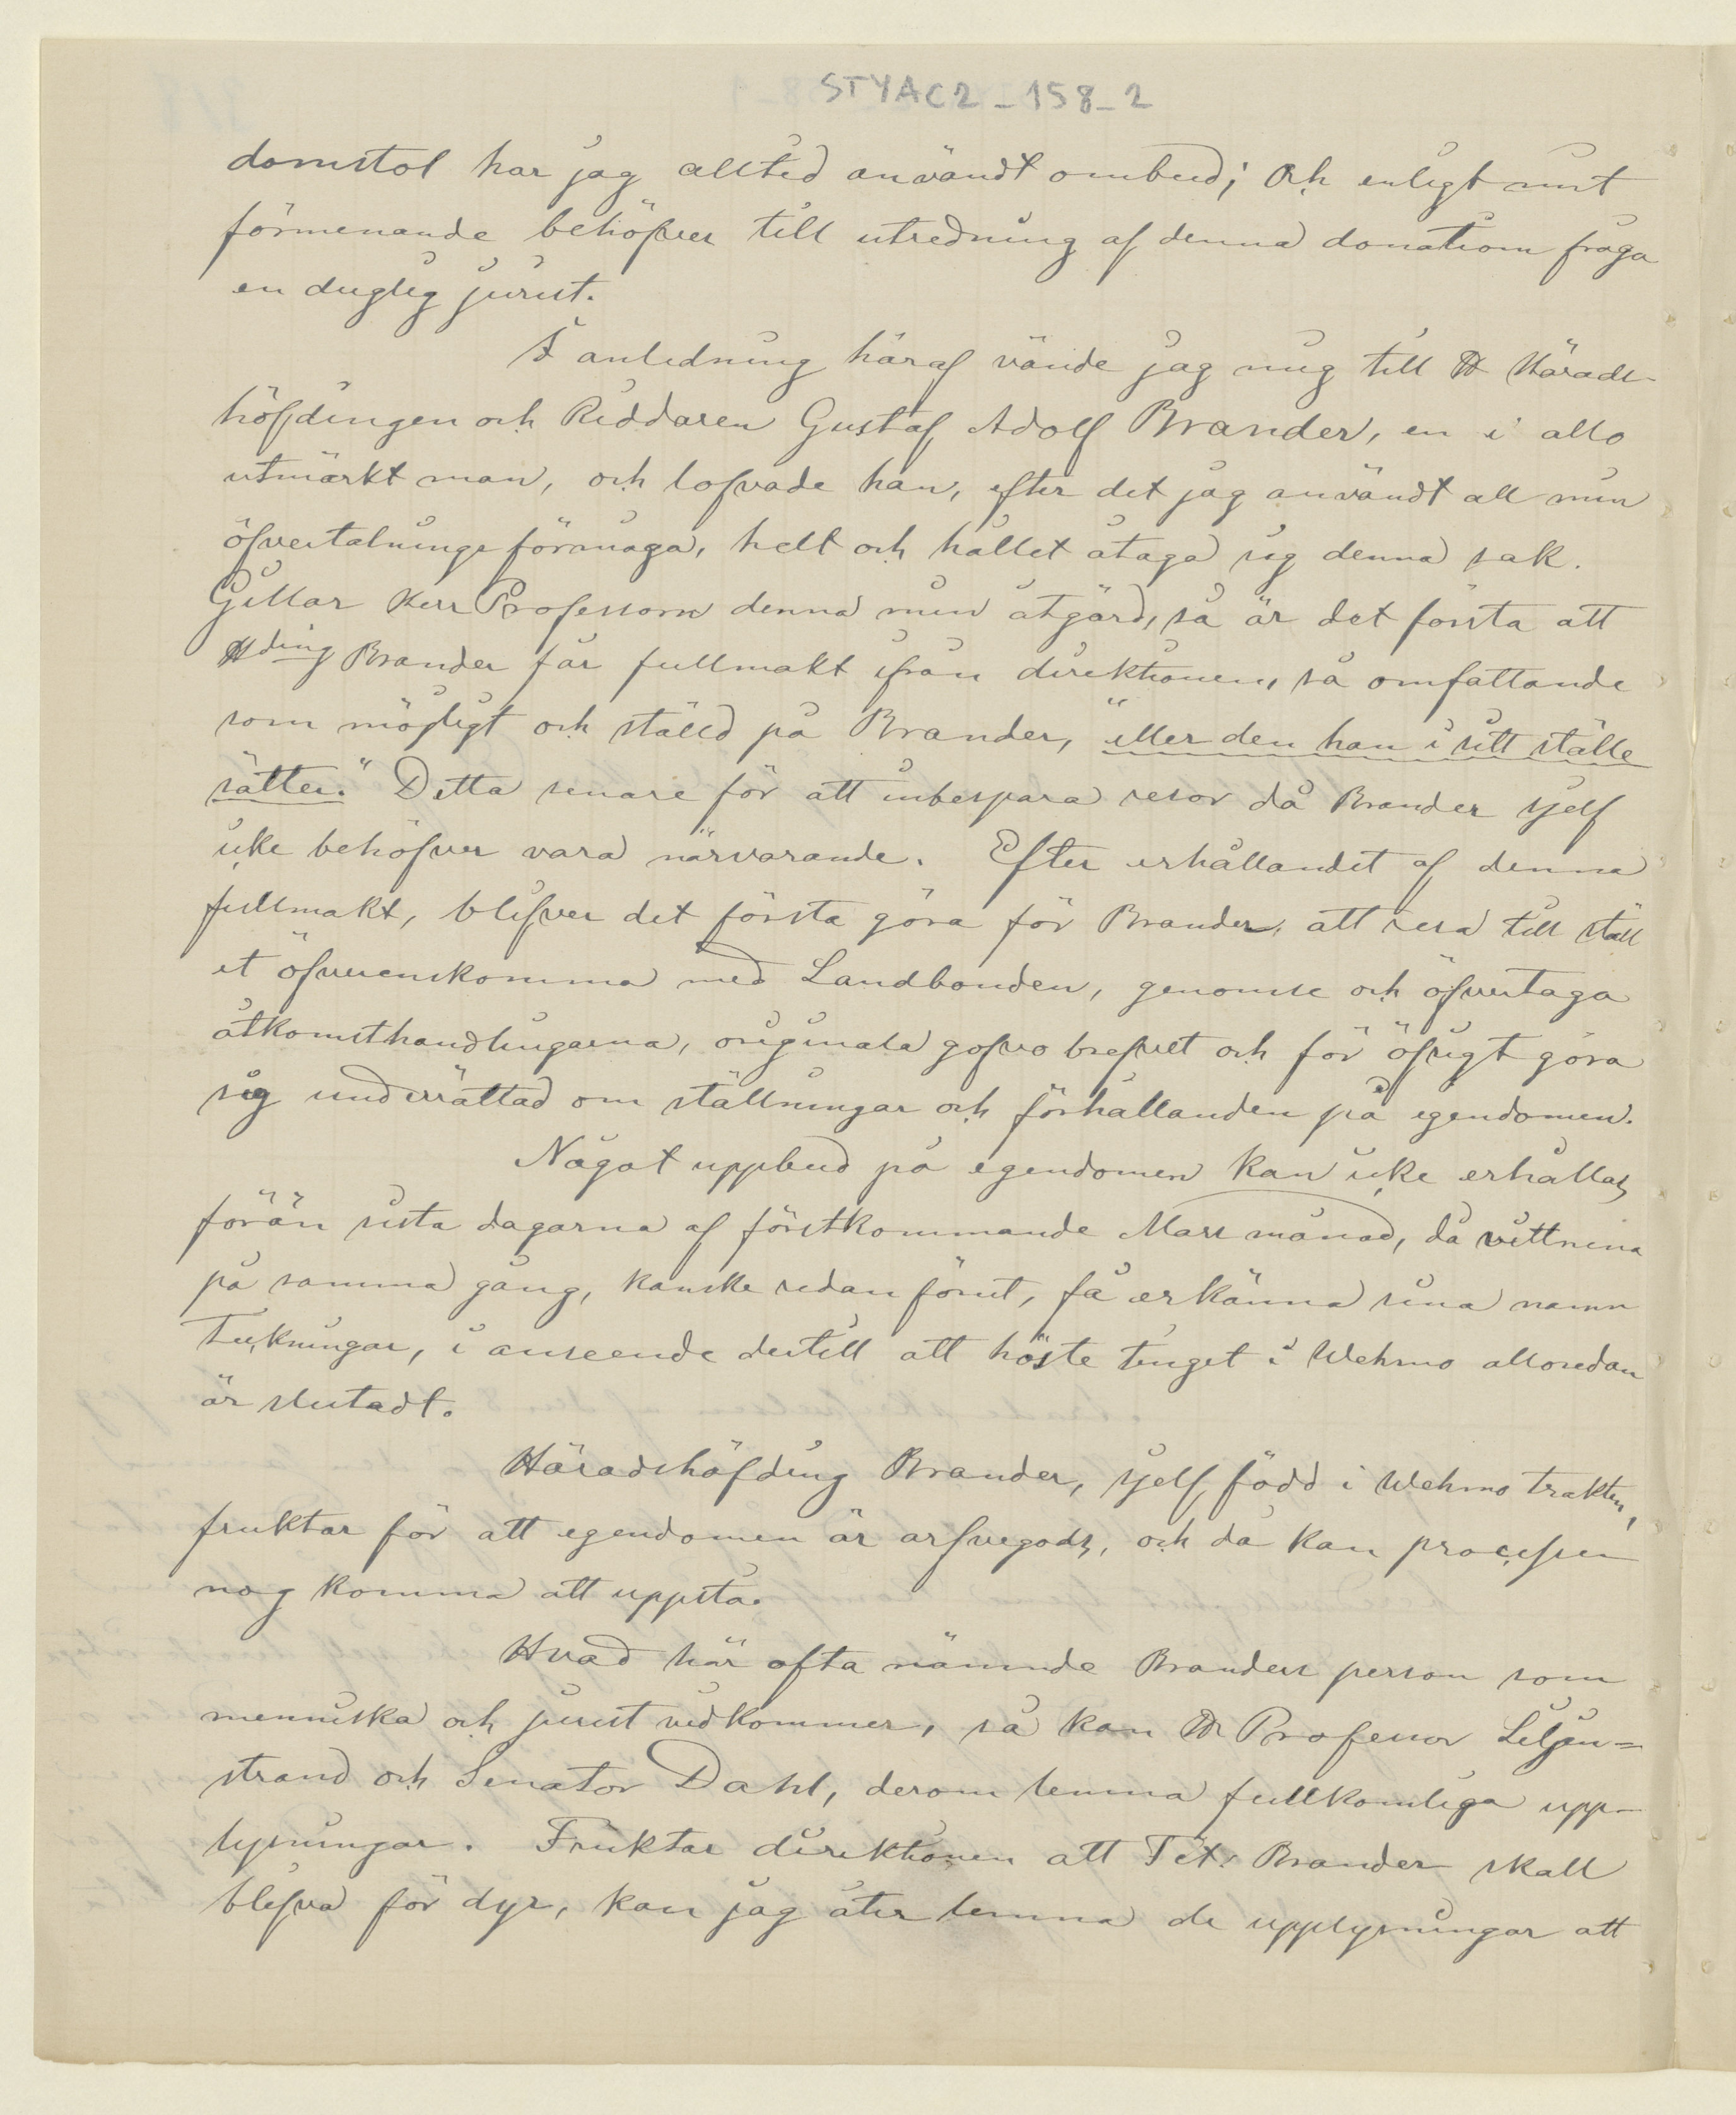 STYAC2_158_2
domstol har jag alltid användt ombud; och enligt mit
förmenande behöfver till utredning af denna donations fråga
en duglig jurist.
I anledning häraf vände jag mig till Härads-
höfdingen och Riddaren Gustaf Adolf Brander, en i allo
utmärkt man, och lofvade han, efter det jag användt all min
öfvertalnings förmåga, helt och hållet åtaga sig denna sak.
Gillar Herr Professorn denna min åtgärd, så är det första att
Hding Brander får fullmakt ifrån direktionen, så omfattande
som möjligt och ställd på Brander, "eller den han i sitt ställe
sätter." Detta senare för att inbespara resor då Brander sjelf
icke behöfver vara närvarande. Efter erhållandet af denna
fullmakt, blifver det första göra för Brander, att resa till ställ
et öfverenskomma med Landbonden, genomse och öfvertaga
åtkomsthandlingarna, originala gofvo brefvet och för öfrigt göra
sig underrättad om ställningar och förhållanden på egendomen.
Något uppbud på egendomen kan icke erhållas
förän sista dagarna af förstkommande Mars månad, då vittnena
på samma gång, kanske redan förut, få erkänna sina namn
Teckningar, i anseende dertill att höste tinget i Wehmo alloredan
är slutadt.
Häradshöfding Brander, sjelf född i Wehmo trakten,
fruktar för att egendomen är arfvegods, och då kan processer
nog komma att uppstå.
Hvad här ofta nämnde Branders person som
menniska och jurist vidkommer, så kan Professor Liljen=
strand och Senator Dahl, derom lemna fullkomliga upp-
lysningar. Fruktar direktionen att Tit: Brander skall
blifva för dyr, kan jag åter lemna de upplysningar att